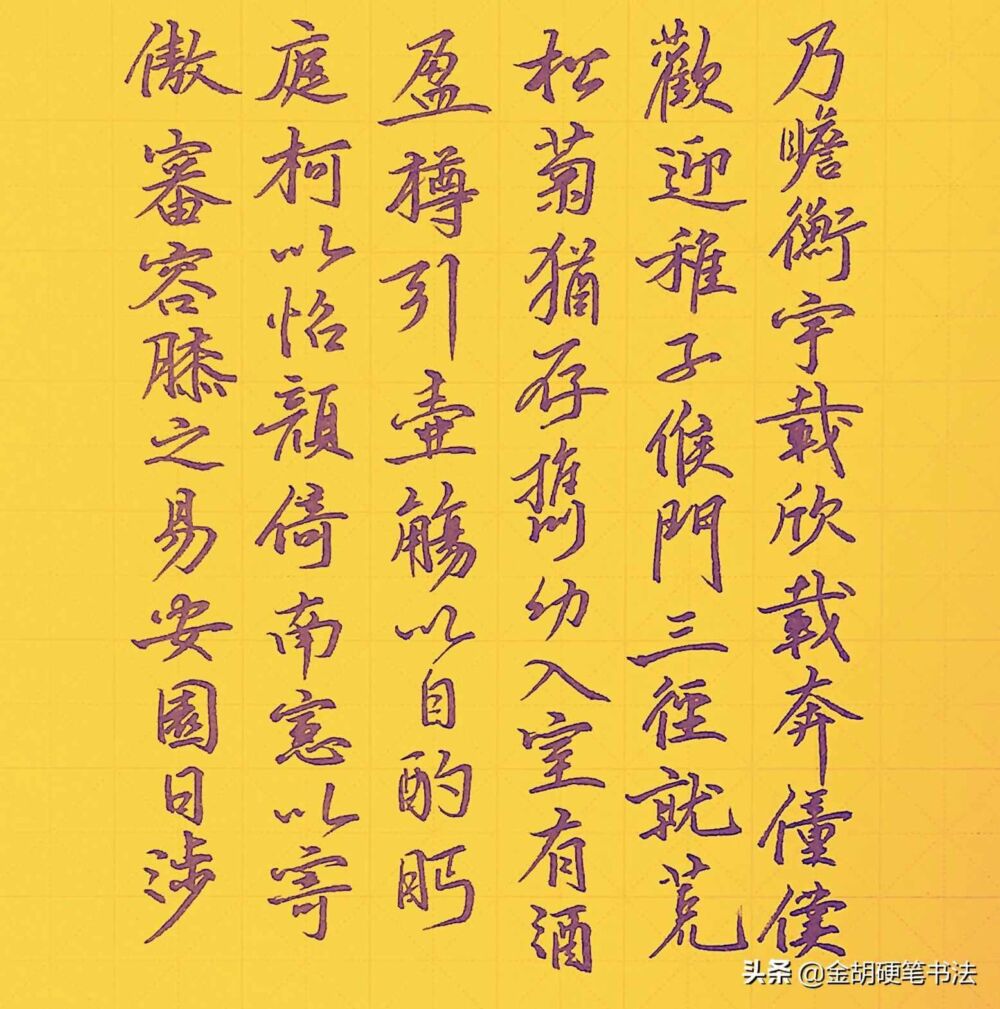 乃瞻衡宇載欣載奔僮僕
歡迎稚子候門三徑就荒
松菊猶存擕幼入室有酒
盈樽引壺觴以自酌眄
庭柯以怡顏倚南窻以寄
傲審容膝之易安園日涉
头条 @金胡硬笔书法